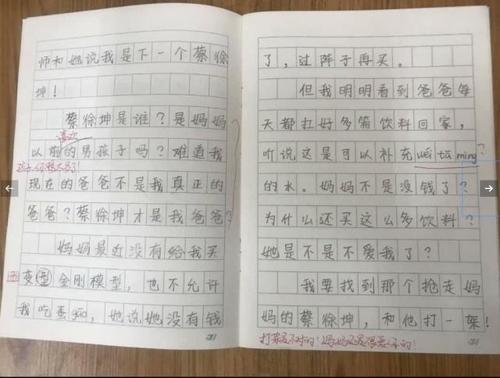 师和她说我是下一个蔡徐
坤!
蔡徐坤是谁?是妈妈
喜欢
以前的男孩子吗?难道我
孩子,你想多了!
现在的爸爸不是我真正的
爸爸?蔡徐坤才是我爸爸?
妈妈最近没有给我买
变型金刚模型,也不允许
我吃蛋糕,她说她没有钱
了,过阵子再买。
但我明明看到爸爸每
天都扛好多箱饮料回家,
听说这是可以补充wéi tā ming
的水。妈妈不是没钱了?
为什么还买这么多饮料?
她是不是不爱我了?
我要找到那个抢走妈
妈的蔡徐坤,和他打一架!
打架是不对的!妈妈还是很爱你的!